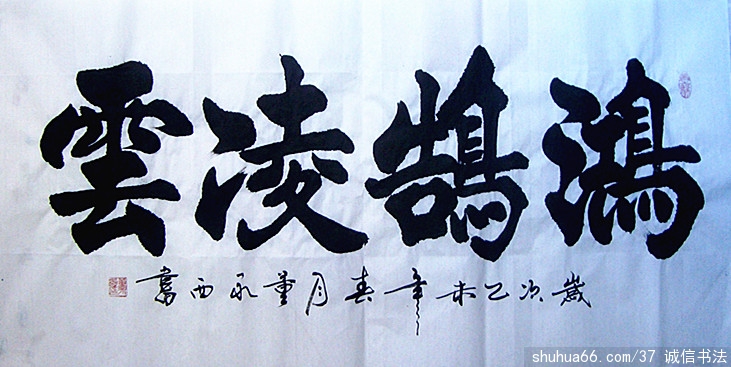 鴻鵠凌雲
歲次乙未年春月董永西書
shuhua66.com/37 诚信书法